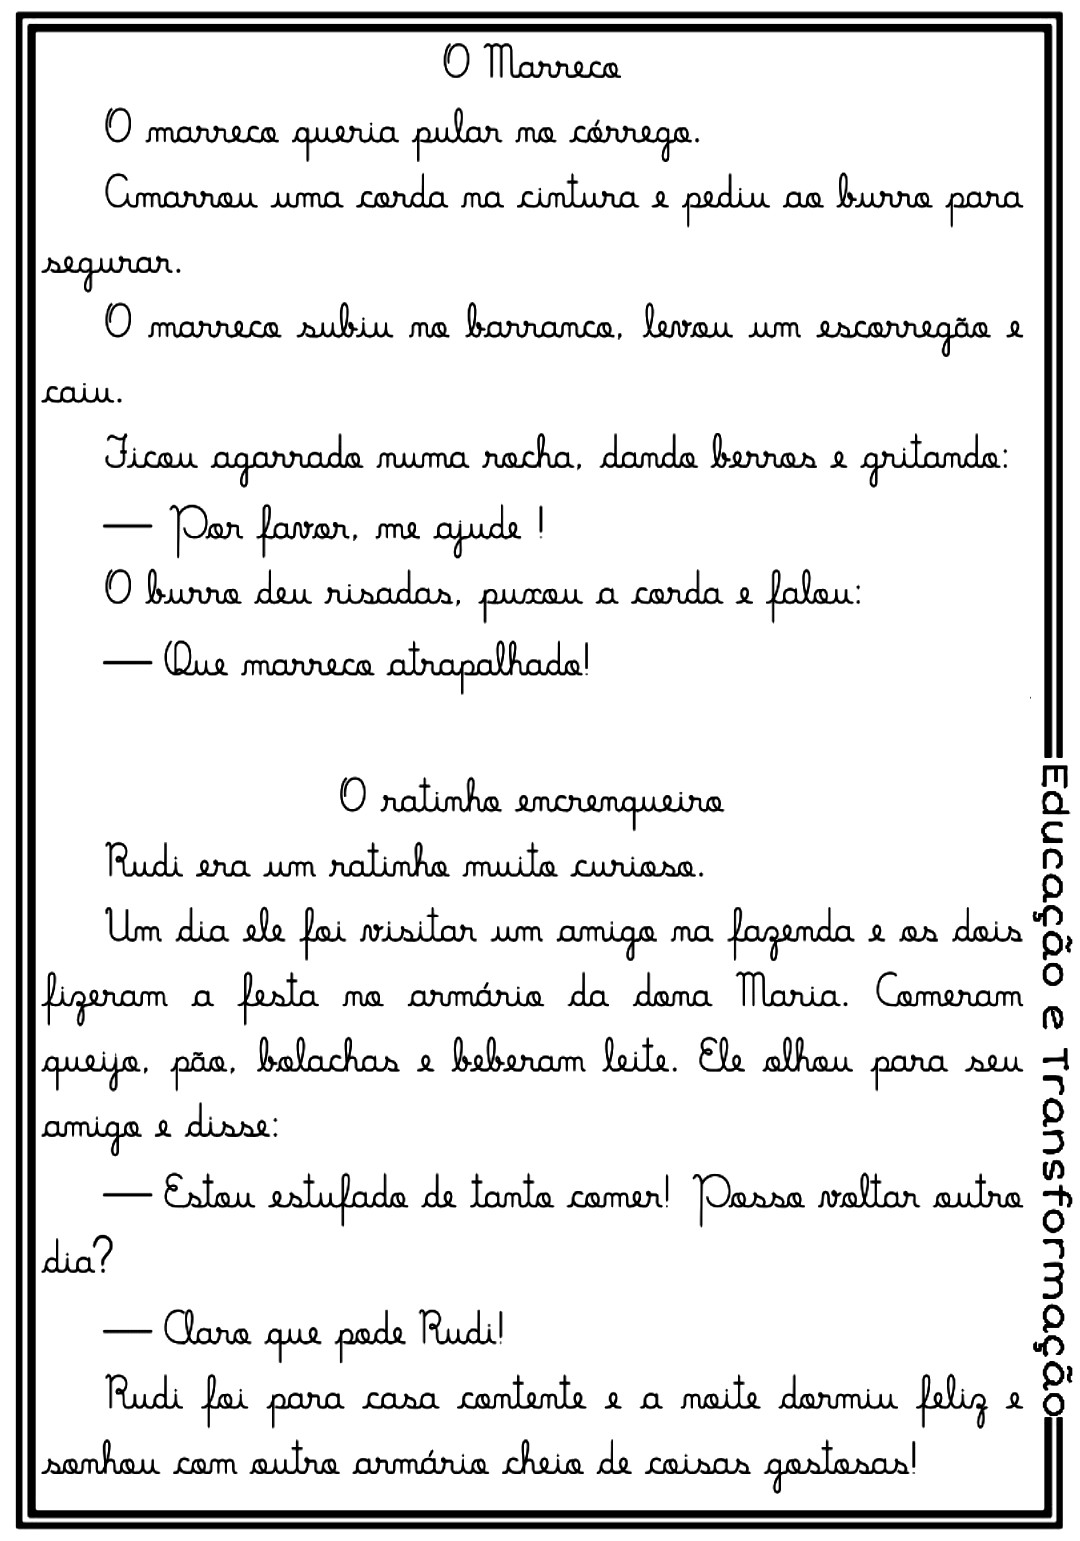 O Marreco
O marreco queria pular no córrego.
Amarrou uma corda na cintura e pediu ao burro para
segurar.
O marreco subiu no barranco, levou um escorregão e
caiu.
Ficou agarrado numa rocha, dando berros e gritando:
— Por favor, me ajude !
O burro deu risadas, puxou a corda e falou:
— Que marreco atrapalhado!
O ratinho encrenqueiro
Rudi era um ratinho muito curioso.
Um dia ele foi visitar um amigo na fazenda e os dois
fizeram a festa no armário da dona Maria. Comeram
queijo, pão, bolachas e beberam leite. Ele olhou para seu
amigo e disse:
— Estou estufado de tanto comer! Posso voltar outro
dia?
— Claro que pode Rudi!
Rudi foi para casa contente e a noite dormiu feliz e
sonhou com outro armário cheio de coisas gostosas!
Educação e Transformação